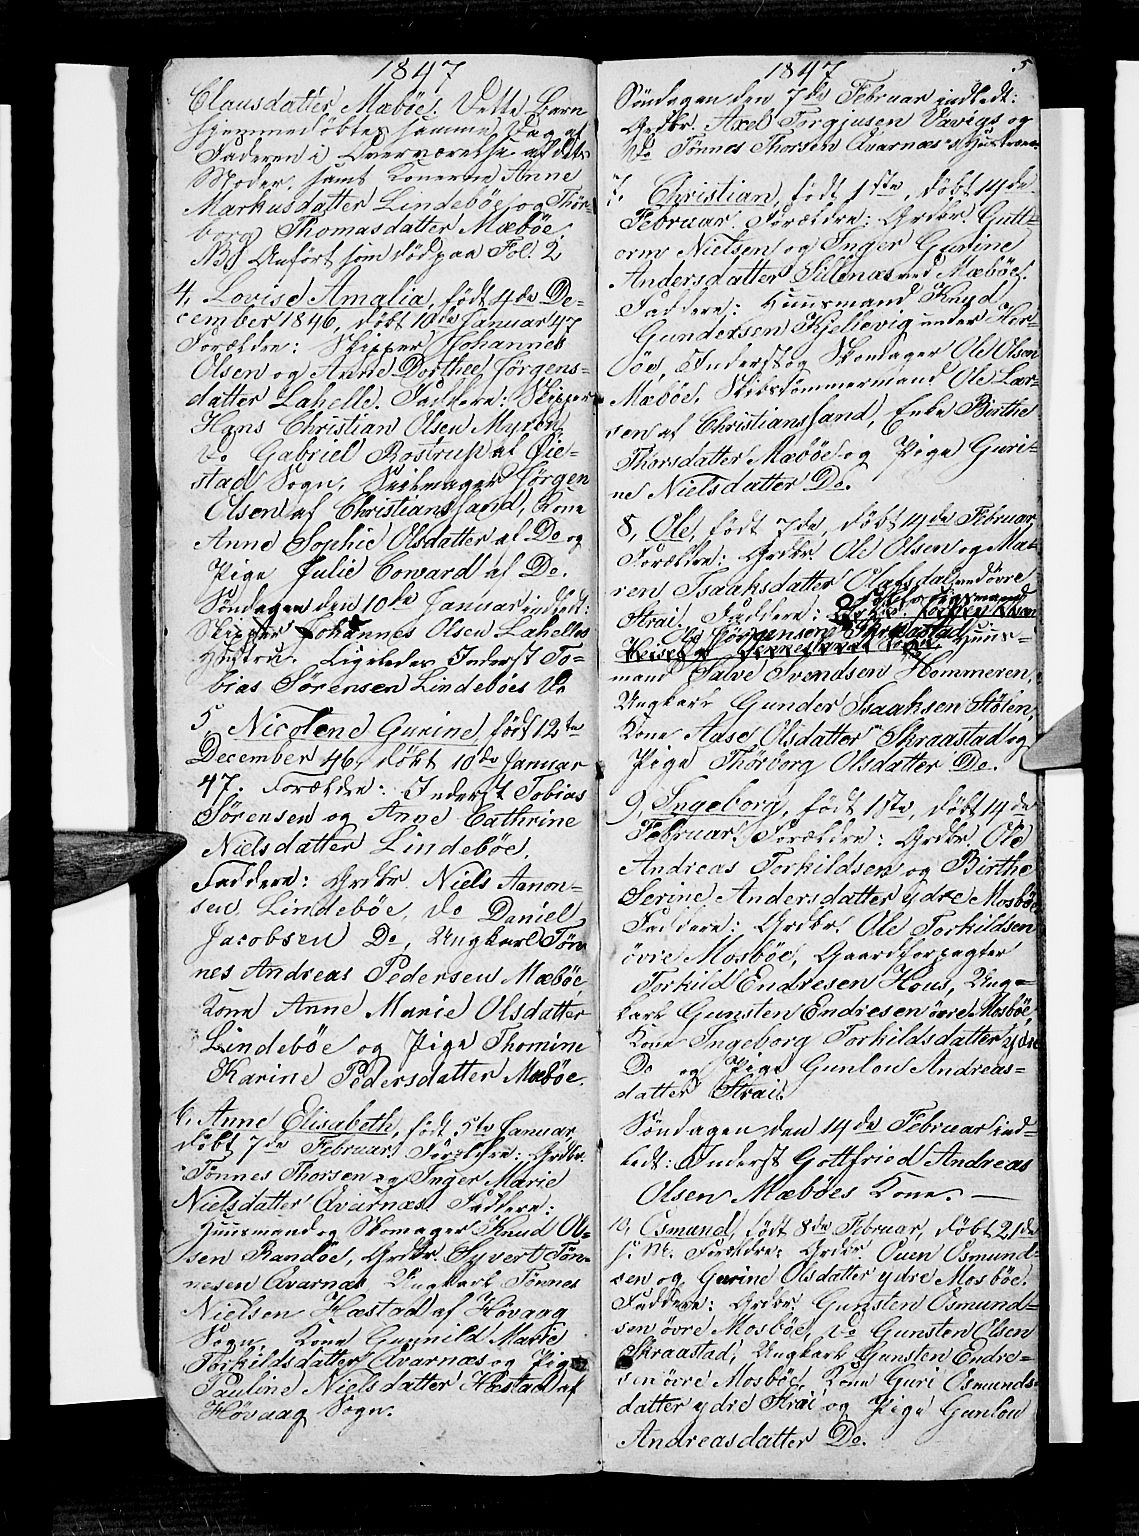 1847
Clausdatter Mæbøe. Dette Barn
hjemmedøbtes samme Dag af
Faderen i Overværelse af dets
Moder, samt Konerne Anne
Markusdatter Lindebøe og Thor-
borg Thomasdatter Mæbøe.
NB. Anført som død paa Fol. 2.
4, Lovise Amalia, født 4de De-
cember 1846, døbt 10de Januar 47
Forældre: Skipper Johannes
Olsen og Anne Dorthee Jørgens-
datter Lahelle. Faddere: Skipper
Hans Christian Olsen Myren
Do Gabriel Rostrup af Øie-
stad Sogn, Seilmager Jørgen
Olsen af Christianssand, Kone
Anne Sophie Olsdatter af Do og
Pige Julie Coward af Do.
Søndagen den 10de Januar indledt:
Skipper Johannes Olsen Lahelles
Hustru. Ligeledes Inderst To-
bias Sørensen Lindebøes Do
5, Nicolene Gurine, født 12te
December 46, døbt 10de Januar
47. Forældre: Inderst Tobias
Sørensen og Anne Cathrine
Nielsdatter Lindebøe.
Faddere: Grdbr. Niels Aanon-
sen Lindebøe, Do Daniel
Jacobsen Do, Ungkarl Tøn-
nes Andreas Pedersen Mæbøe,
Kone Anne Marie Olsdatter
Lindebøe og Pige Thomine
Karine Pedersdatter Mæbøe.
6, Anne Elisabeth, født 5te Januar,
døbt 7de Februar. Forældre: Grdbr.
Tønnes Thorsen og Inger Marie
Nielsdatter Qvarnæs. Faddere:
Huusmand og Skomager Knud Ol-
sen Randøe, Grdbr. Syvert Tøn-
nesen Qvarnæs Ungkarl Tønnes
Nielsen Hæstad af Høvaag
Sogn, Kone Gunnild Marie
Torkildsdatter Qvarnæs og Pige
Pauline Nielsdatter Hæstad af
Høvaag Sogn.
1847 5
Søndagen den 7de Februar indledt:
Grdbr. Axel Tergjusen Vavigs og
Do Tønnes Thorsen Qvarnæs's Hustruer.
7, Christian, født 1ste, døbt 14de
Februar. Forældre: Grdbr. Gutt-
orm Nielsen og Inger Gurine
Andersdatter Sulenæs ved Mæbøe.
Faddere: Huusmand Knud
Gundersen Kjellevig under Her-
øe, Inderst og Skredager Ole Olsen
Mæbøe, Skibstømmermand Ole Lar-
sen af Christianssand, Enke Birthe
Thorsdatter Mæbøe og Pige Guri-
ne Nielsdatter Do.
8, Ole, født 7de, døbt 14de Februar,
Forældre: Grdbr. Ole Olsen og Ma-
ren Isaaksdatter Olagsdal ved øvre
Strai. Faddere:
Ole Jørgensen Skraastad, Huus-
mand Salve Svendsen Hommeren,
Ungkarl Gunder Isaaksen Stølen,
Kone Aase Olsdatter Skraastad og
Pige Thørborg Olsdatter Do.
9, Ingeborg, født 1ste, døbt 14de
Februar. Forældre: Grdbr. Ole
Andreas Torkildsen og Birthe
Serine Andersdatter ydre Mosbøe
Faddere: Grdbr. Ole Torkildsen
øvre Mosbøe, Gaardforpagter
Torkild Endresen Hous, Ung-
karl Gunsten Endresen øvre Mosbøe,
Kone Ingeborg Torkildsdatter ydre
Do og Pige Gunlou Andreas-
datter Strai.
Søndagen den 14de Februar ind-
ledt: Inderst Gottfried Andreas
Olsen Mæbøes Kone. —
10, Osmund, født 8de Februar, døbt 21de
s: M: Forældre: Grdbr. Ouen Osmund-
sen og Gurine Olsdatter ydre Mosbøe.
Faddere: Grdbr. Gunsten Osmund-
sen øvre Mosbøe, Do Gunsten Olsen
Skraastad, Ungkarl Gunsten Endre-
sen øvre Mosbøe, Kone Guri Osmunds-
datter ydre Strai og Pige Gunlou
Andreasdatter Do.